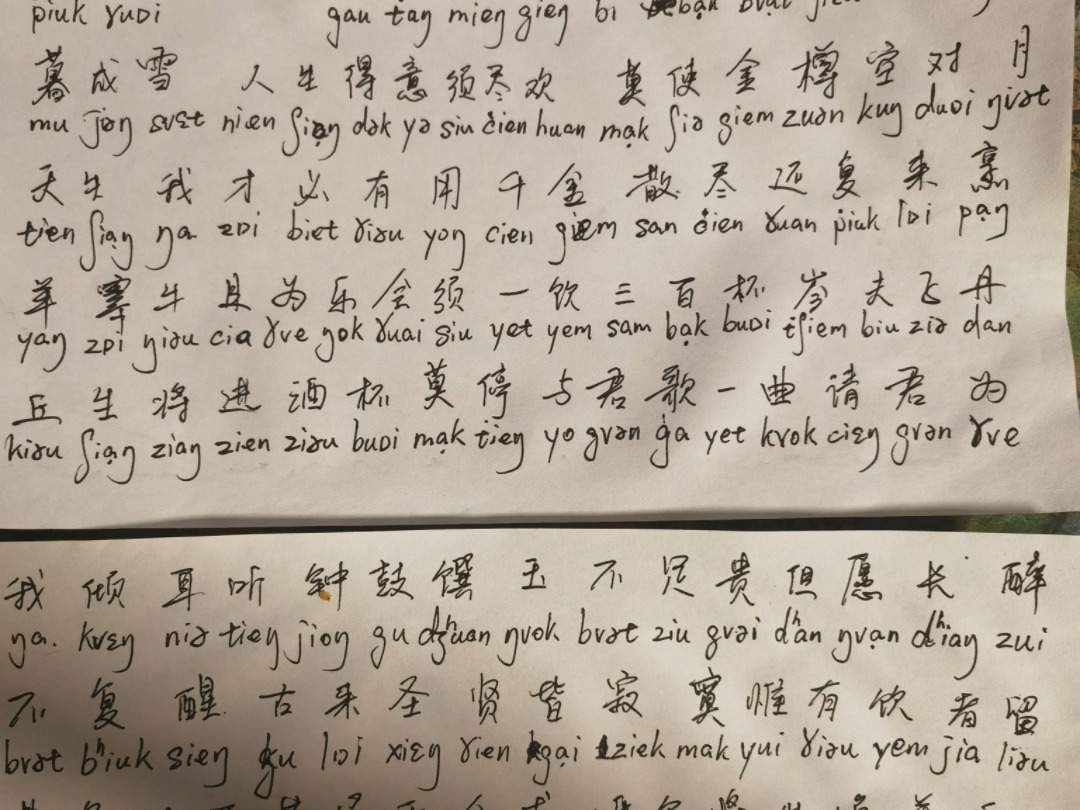 piuk ɣuɒi gau taŋ mieŋ gieŋ bi
暮成雪 人生得意须尽欢 莫使金樽空对月
mu jəŋ svɛt niɛn ʃiạŋ dək yə siu ċien huan mạk ʃiə giem zuən kuŋ duɒi ŋivɐt
天生我才必有用千金散尽还复来烹
tien ʃiạŋ ŋa zɒi biet ɣiəu yoŋ cien giem san ċien ɣuan piuk lɒi pạŋ
羊宰牛且为乐会须一饮三百杯岑夫飞丹
yaŋ zɒi ŋiəu cia ɣve ŋok ɣuai siu yet yem sam bạk buɒi tʃiem biu ziə dan
丘生将进酒杯莫停与君歌一曲请君为
kiəu ʃiạŋ ziaŋ zien ziəu buɒi mạk tieŋ yo gvən ġa yet kvok cieŋ gvən ɣve
我倾耳听钟鼓馔玉不足贵但愿长醉
ŋa. kvɛŋ niə tieŋ jioŋ gu dʒʰuan ŋvok bvət ziu gvəi dʰan ŋvạn dʰiaŋ zui
不复醒古来圣贤皆寂寞惟有饮者留
bvət bʰiuk sieŋ gu lɒi xieŋ ɣien gại ziek mak yui ɣiəu yem jia liəu